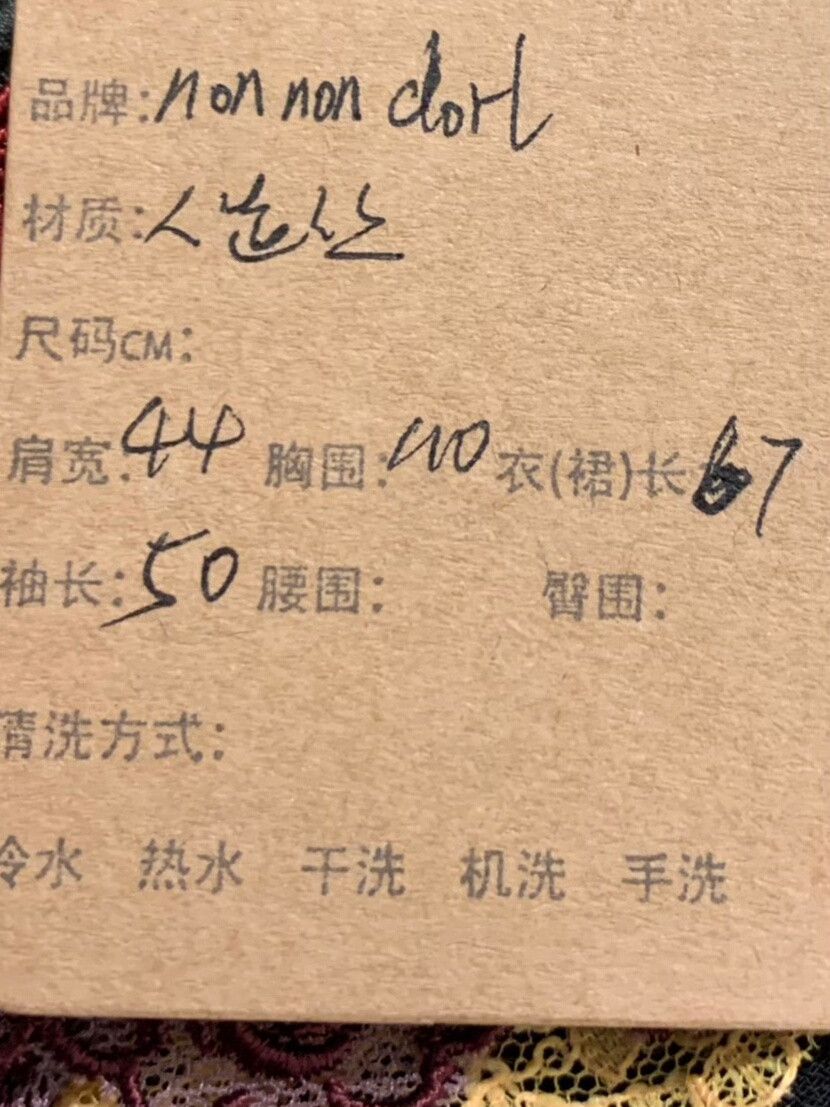 品牌:non non dorl
材质:人造丝
尺码CM:
肩宽:44 胸围:110 衣(裙)长:67
袖长:50 腰围: 臀围:
清洗方式:
冷水 热水 干洗 机洗 手洗